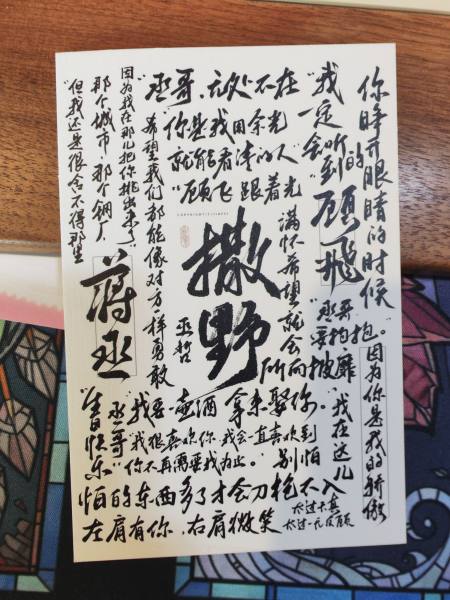 你睁开眼睛的时候
"我一定会听到的"
顾飞
"丞哥，无处不在
"你是我用余光
就能看清的人"
"顾飞跟着光
满怀希望就会
所向披靡
希望我们都能像对方一样勇敢
因为我在那儿把你挑出来了"
那个城市，那个钢厂
"但我还是很舍不得那里
撒野
巫哲
蒋丞
丞哥
要抱抱。
因为你是我的骄傲
"我在这儿
别怕
"我要一壶酒 拿来娶你
"我很喜欢你，我会一直喜欢到
你不再需要我为止。"
"丞哥
生日快乐"
怕的东西多了才会刀枪不入
左肩有你，右肩微笑